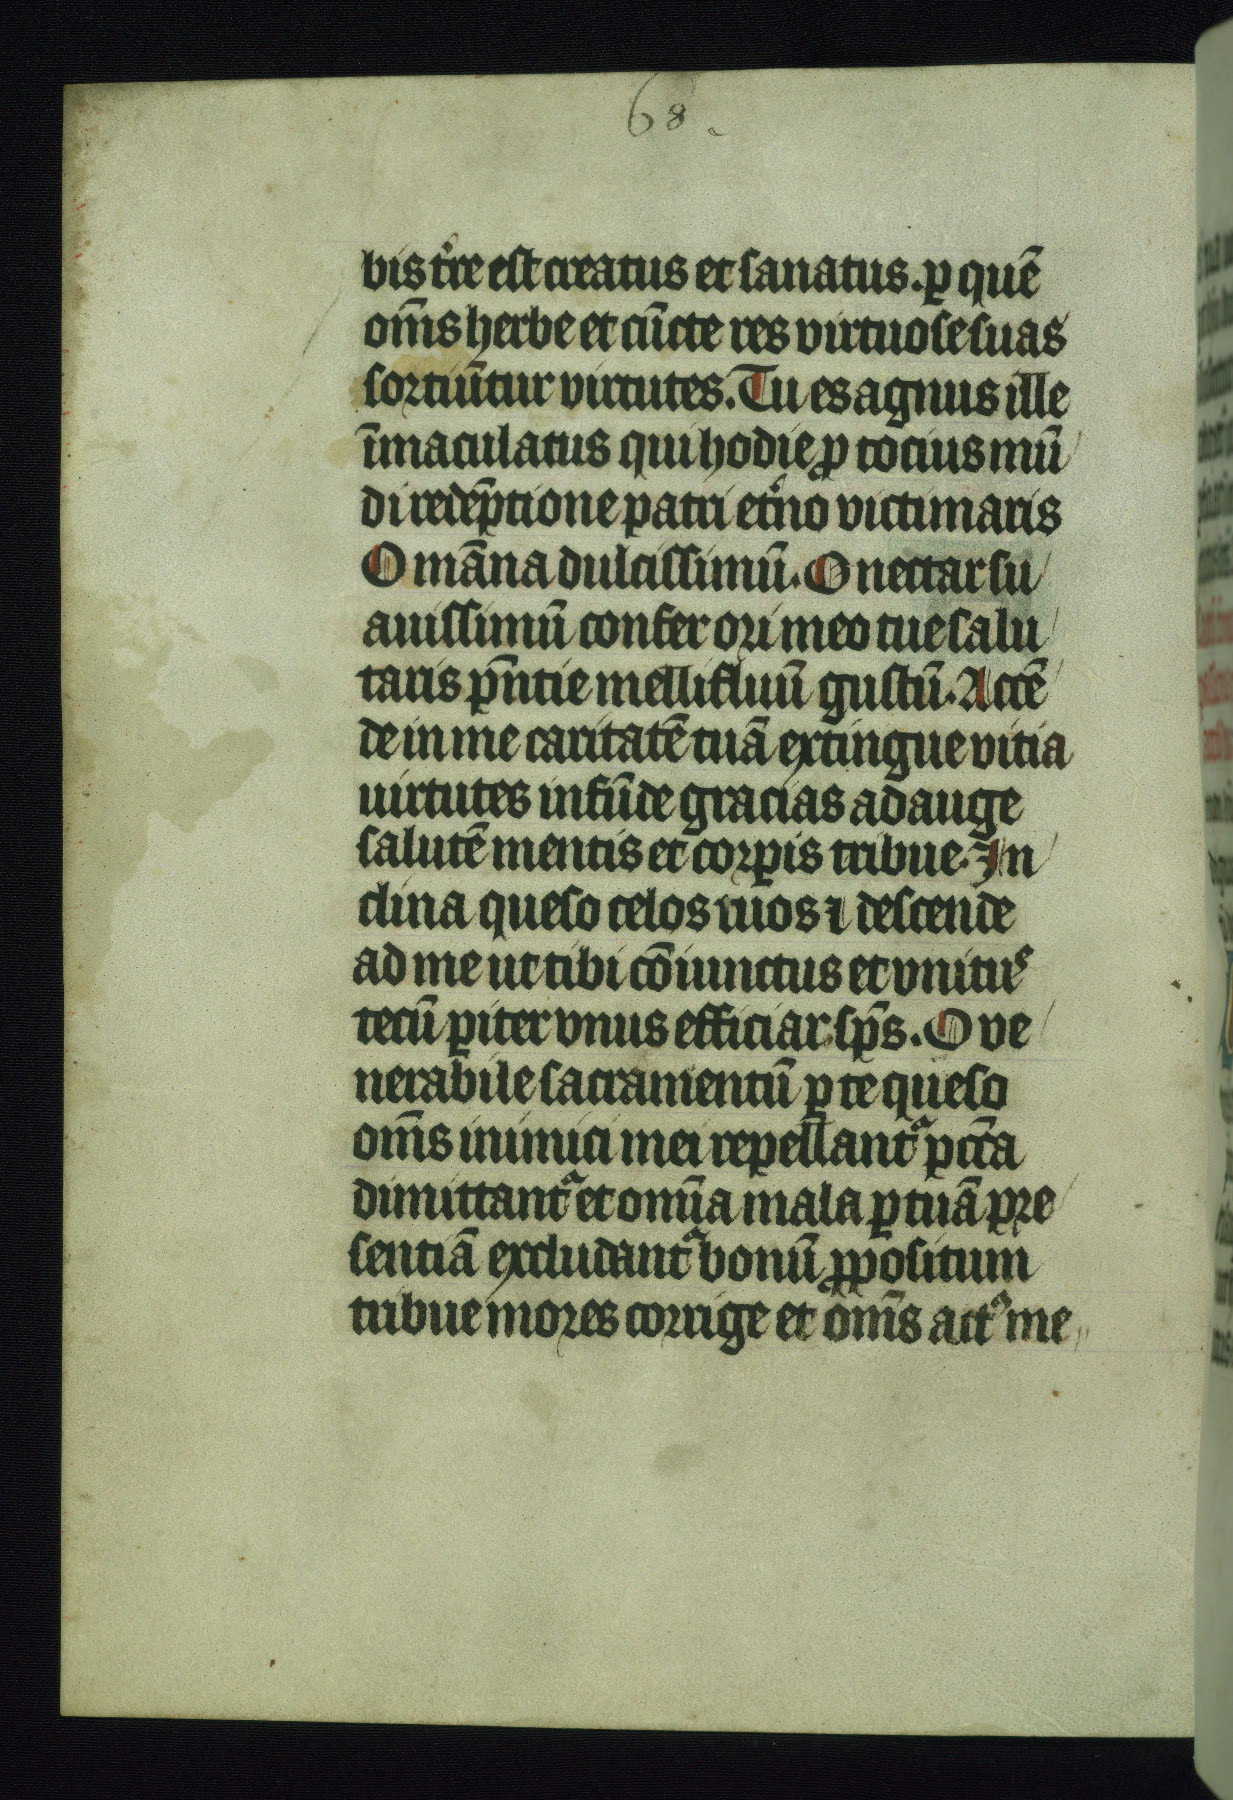 68.
bis t͛re est creatus et sanatus. ꝑ quē
om̄s herbe et cūcte res virtuose suas
sortiūtur virtutes. Tu es agnus ille
īmaculatus qui hodie ꝓ tocius mū
di redēptione patri et͛no victimaris
O māna dulcissimū. O nectar su
auissimū confer ori meo tue salu
taris p̄ntie mellifluū gustū. Accē
de in me caritatē tuā extingue vitia
uirtutes infūde gracias adauge
salutē mentis et corꝑis tribue. In
clina queso celos tuos ⁊ descende
ad me ut tibi cōiunctus et vnitus
tecū ꝑiter vnus efficiar sp̄s. O ve
nerabile sacramentū ꝑ te queso
om̄s inimici mei repellant᷑ pctā
dimittant᷑ et omīa mala ꝑ tuā pre
sentiā excludant᷑ bonū ꝓpositum
tribue mores corrige et om̄s actꝰ me